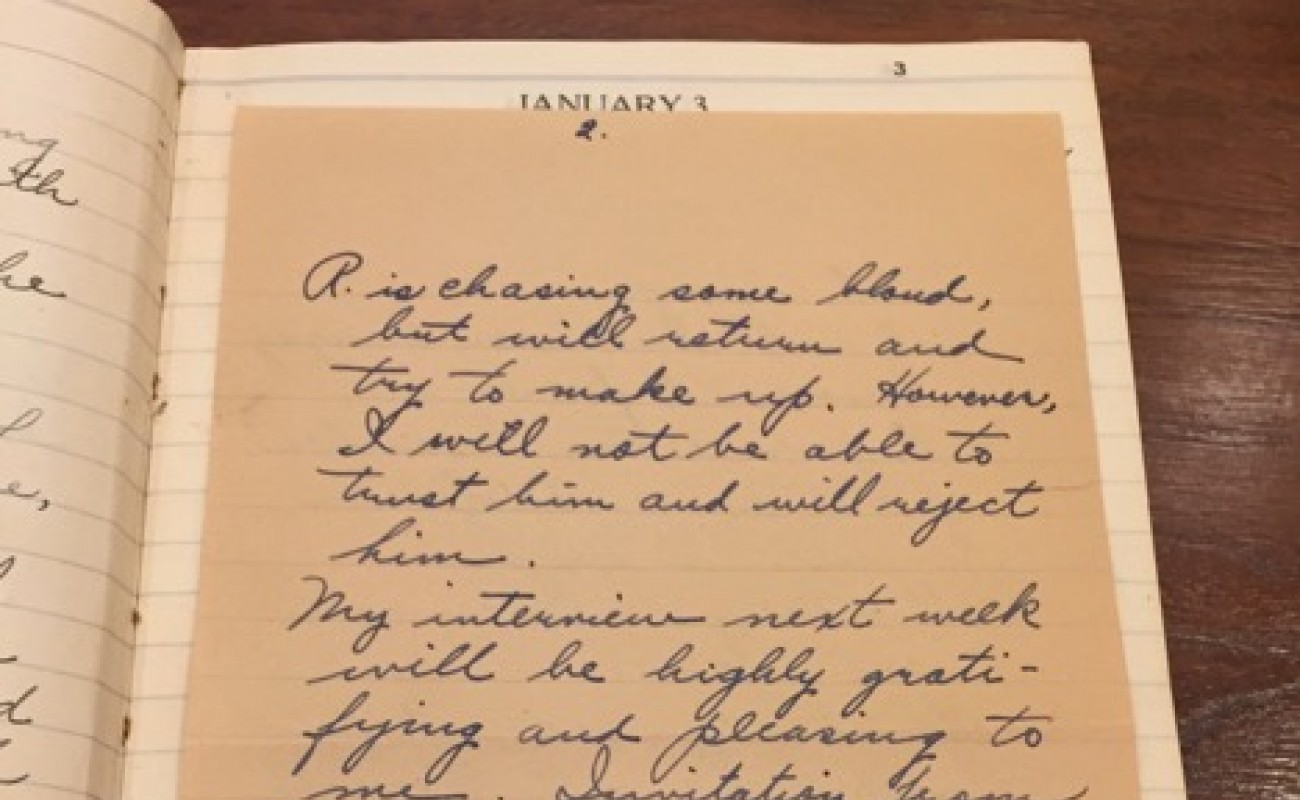 3
JANUARY 3
2.
R. is chasing some blond,
but will return and
try to make up. However,
I will not be able to
trust him and will reject
him.
My interview next week
will be highly grati-
fying and pleasing to
me. Invitation from